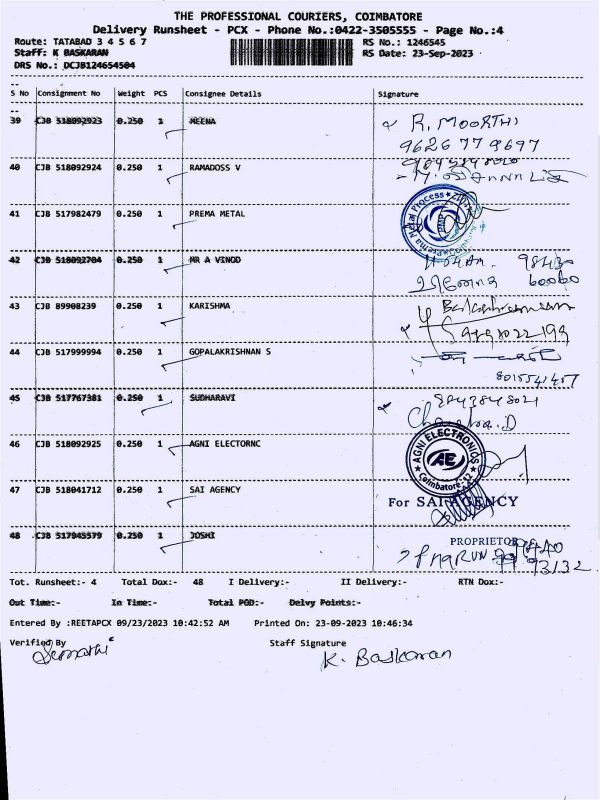 THE PROFESSIONAL COURIERS, COIMBATORE
Delivery Runsheet - PCX - Phone No.:0422-3505555 - Page No.:4
Route: TATABAD 3 4 5 6 7 RS No.: 1246545
Staff: K BASKARAN RS Date: 23-Sep-2023
DRS No.: DCJB124654504
S No Consignment No Weight PCS Consignee Details Signature
39 CJB 518092923 0.250 1 MEENA R. MOORTHI
9626779697
40 CJB 518092924 0.250 1 RAMADOSS V
41 CJB 517982479 0.250 1 PREMA METAL
Prema Metal Process
42 CJB 518092704 0.250 1 MR A VINOD
43 CJB 89908239 0.250 1 KARISHMA
44 CJB 517999994 0.250 1 GOPALAKRISHNAN S
8015541457
45 CJB 517767381 0.250 1 SUDHARAVI
46 CJB 518092925 0.250 1 AGNI ELECTORNC
AGNI ELECTRONICS
AE
Coimbatore-12
47 CJB 518041712 0.250 1 SAI AGENCY
For SAI AGENCY
48 CJB 517945579 0.250 1 JOSHI
PROPRIETOR
Tot. Runsheet:- 4 Total Dox:- 48 I Delivery:- II Delivery:- RTN Dox:-
Out Time:- In Time:- Total POD:- Delvy Points:-
Entered By :REETAPCX 09/23/2023 10:42:52 AM Printed On: 23-09-2023 10:46:34
Verified By Staff Signature
K. Baskaran